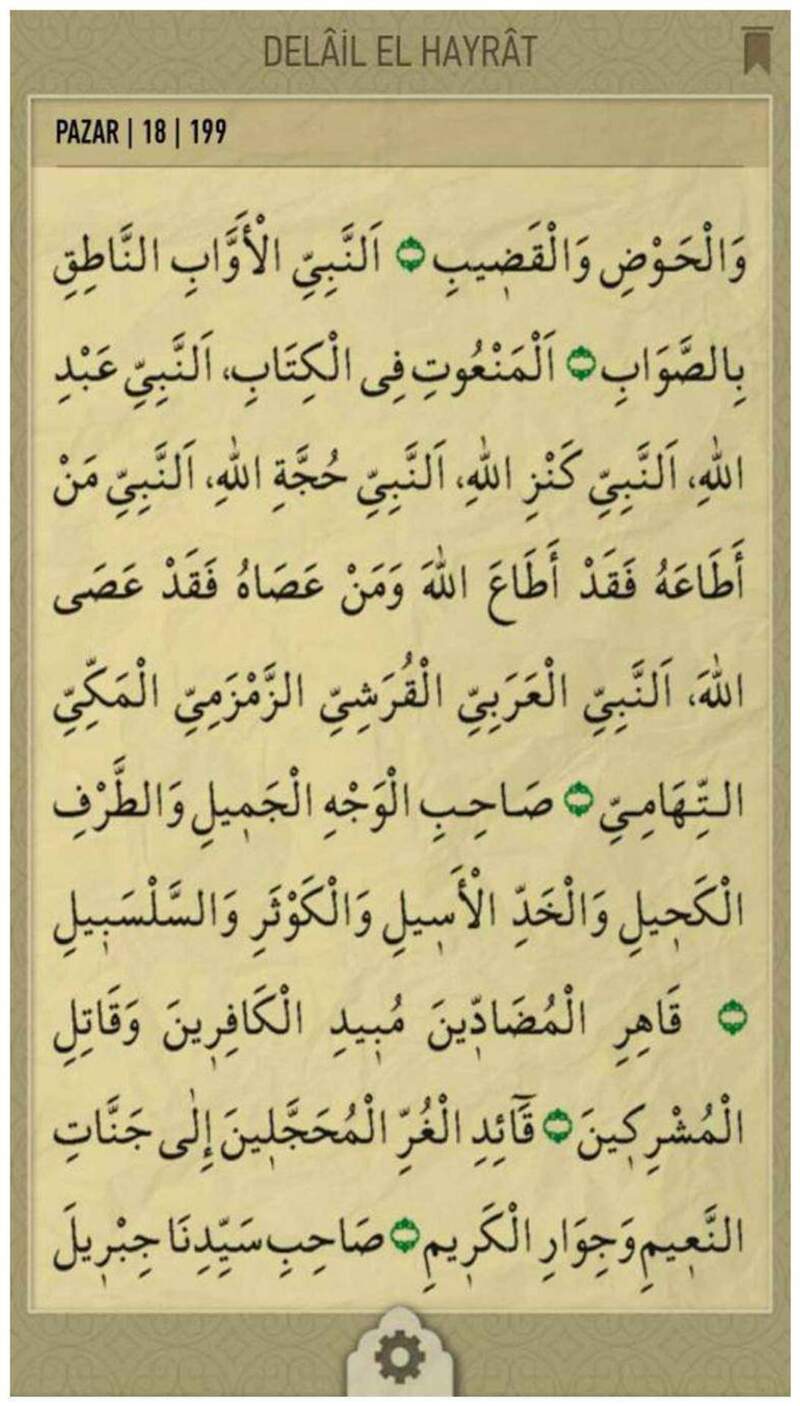 DELÂİL EL HAYRÂT
PAZAR | 18 | 199
وَالْحَوْضِ وَالْقَضٖيبِ ۝ اَلنَّبِيِّ الْأَوَّابِ النَّاطِقِ
بِالصَّوَابِ ۝ اَلْمَنْعُوتِ فِى الْكِتَابِ، اَلنَّبِيِّ عَبْدِ
اللّٰهِ، اَلنَّبِيِّ كَنْزِ اللّٰهِ، اَلنَّبِيِّ حُجَّةِ اللّٰهِ، اَلنَّبِيِّ مَنْ
أَطَاعَهُ فَقَدْ أَطَاعَ اللّٰهَ وَمَنْ عَصَاهُ فَقَدْ عَصَى
اللّٰهَ، اَلنَّبِيِّ الْعَرَبِيِّ الْقُرَشِيِّ الزَّمْزَمِيِّ الْمَكِّيِّ
التِّهَامِيِّ ۝ صَاحِبِ الْوَجْهِ الْجَمٖيلِ وَالطَّرْفِ
الْكَحٖيلِ وَالْخَدِّ الْأَسٖيلِ وَالْكَوْثَرِ وَالسَّلْسَبٖيلِ
۝ قَاهِرِ الْمُضَادّٖينَ مُبٖيدِ الْكَافِرٖينَ وَقَاتِلِ
الْمُشْرِكٖينَ ۝ قَٓائِدِ الْغُرِّ الْمُحَجَّلٖينَ إِلٰى جَنَّاتِ
النَّعٖيمِ وَجِوَارِ الْكَرٖيمِ ۝ صَاحِبِ سَيِّدِنَا جِبْرٖيلَ